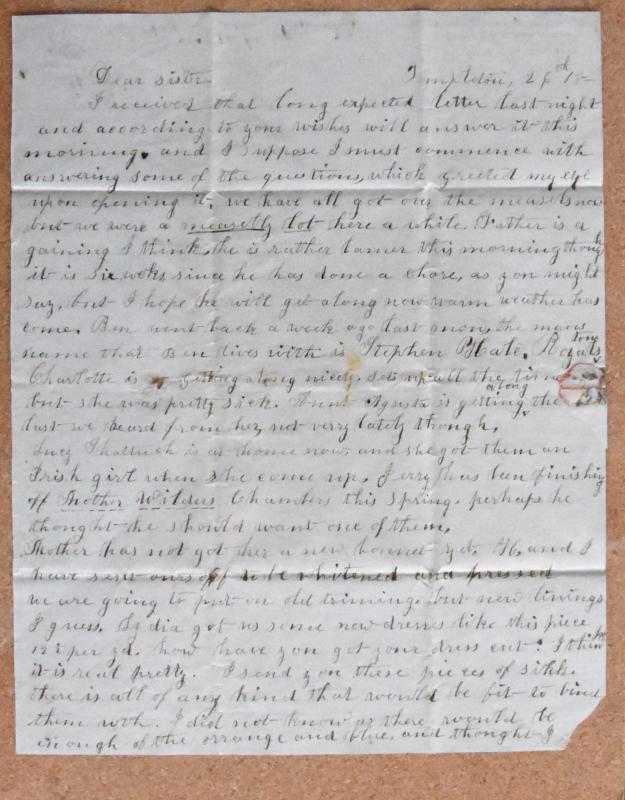 Dear sister Templeton, 26th
I received that long expected letter last night
and according to your wishes will answer it this
morning. and I suppose I must commence with
answering some of the questions, which greeted my eye
upon opening it. we have all got over the measels now
but we were a measelly lot here a while. Father is a
gaining I think, he is rather lamer this morning though
it is six weeks since he has done a chore, as you might
say, but I hope he will get along now warm weather has
come. Ben went back a week ago last mon, the mans
name that Ben lives with is Stephen Royals ton
Charlotte is getting along nicely. sets up all the time
but she was pretty sick. Ann Agusta is getting along the
last we heard from her, not very lately though.
Lucy Shattuck is at home now and she got them an
Irish girl when she come up. Jerry has been finishing
off Mother Wilders Chambers this Spring. perhaps he
thought she should want one of them.
Mother has not got her a new bonnet yet. H. and I
have sent ours off to be whitened and pressed
we are going to put on old triming, but new linings
I guess. Lydia got us some new dresses like this piece
12½ per yd. how have you got your dress cut? I think
it is real pretty. I send you these pieces of silk
there is all of any kind that would be fit to bind
them with. I did not know as there would be
enough of the orrange and blue, and thought I